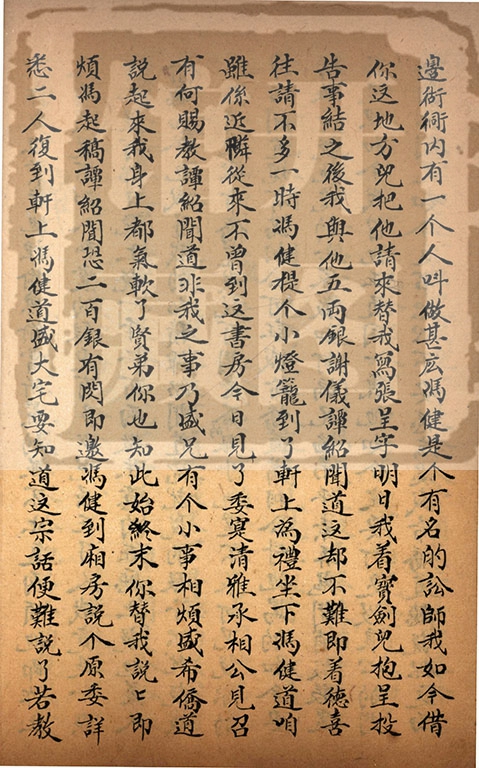 邊衚衕内有一个人叫做甚広馮健是个有名的訟師我如今借
你这地方兒把他請來替我寫張呈字明日我着寶劍兒抱呈投
告事結之後我與他五兩銀謝儀譚紹聞道这却不難即着德喜
往請不多一時馮健提个小燈籠到了軒上為禮坐下馮健道咱
雖係近隣從來不曾到这書房今日見了委寔清雅承相公見召
有何賜教譚紹聞道非我之事乃盛兄有个小事相煩盛希僑道
說起來我身上都氣軟了賢弟你也知此始終末你替我說匕即
煩馮起稿譚紹聞恐二百銀有閃即邀馮健到廂房說个原委詳
悉二人復到軒上馮健道盛大宅要知道这宗話便難説了若教